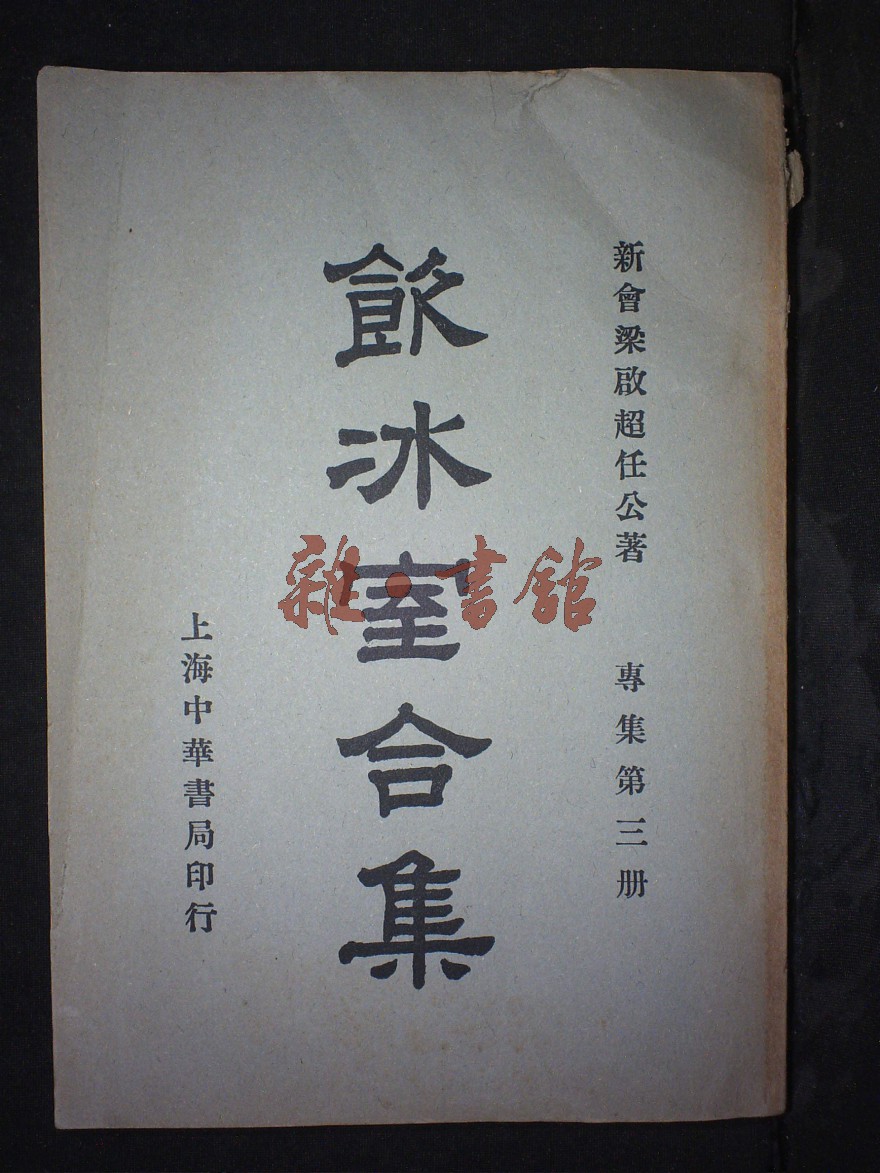 新會梁啟超任公著
專集第三册
飲冰室合集
上海中華書局印行
雜·書館